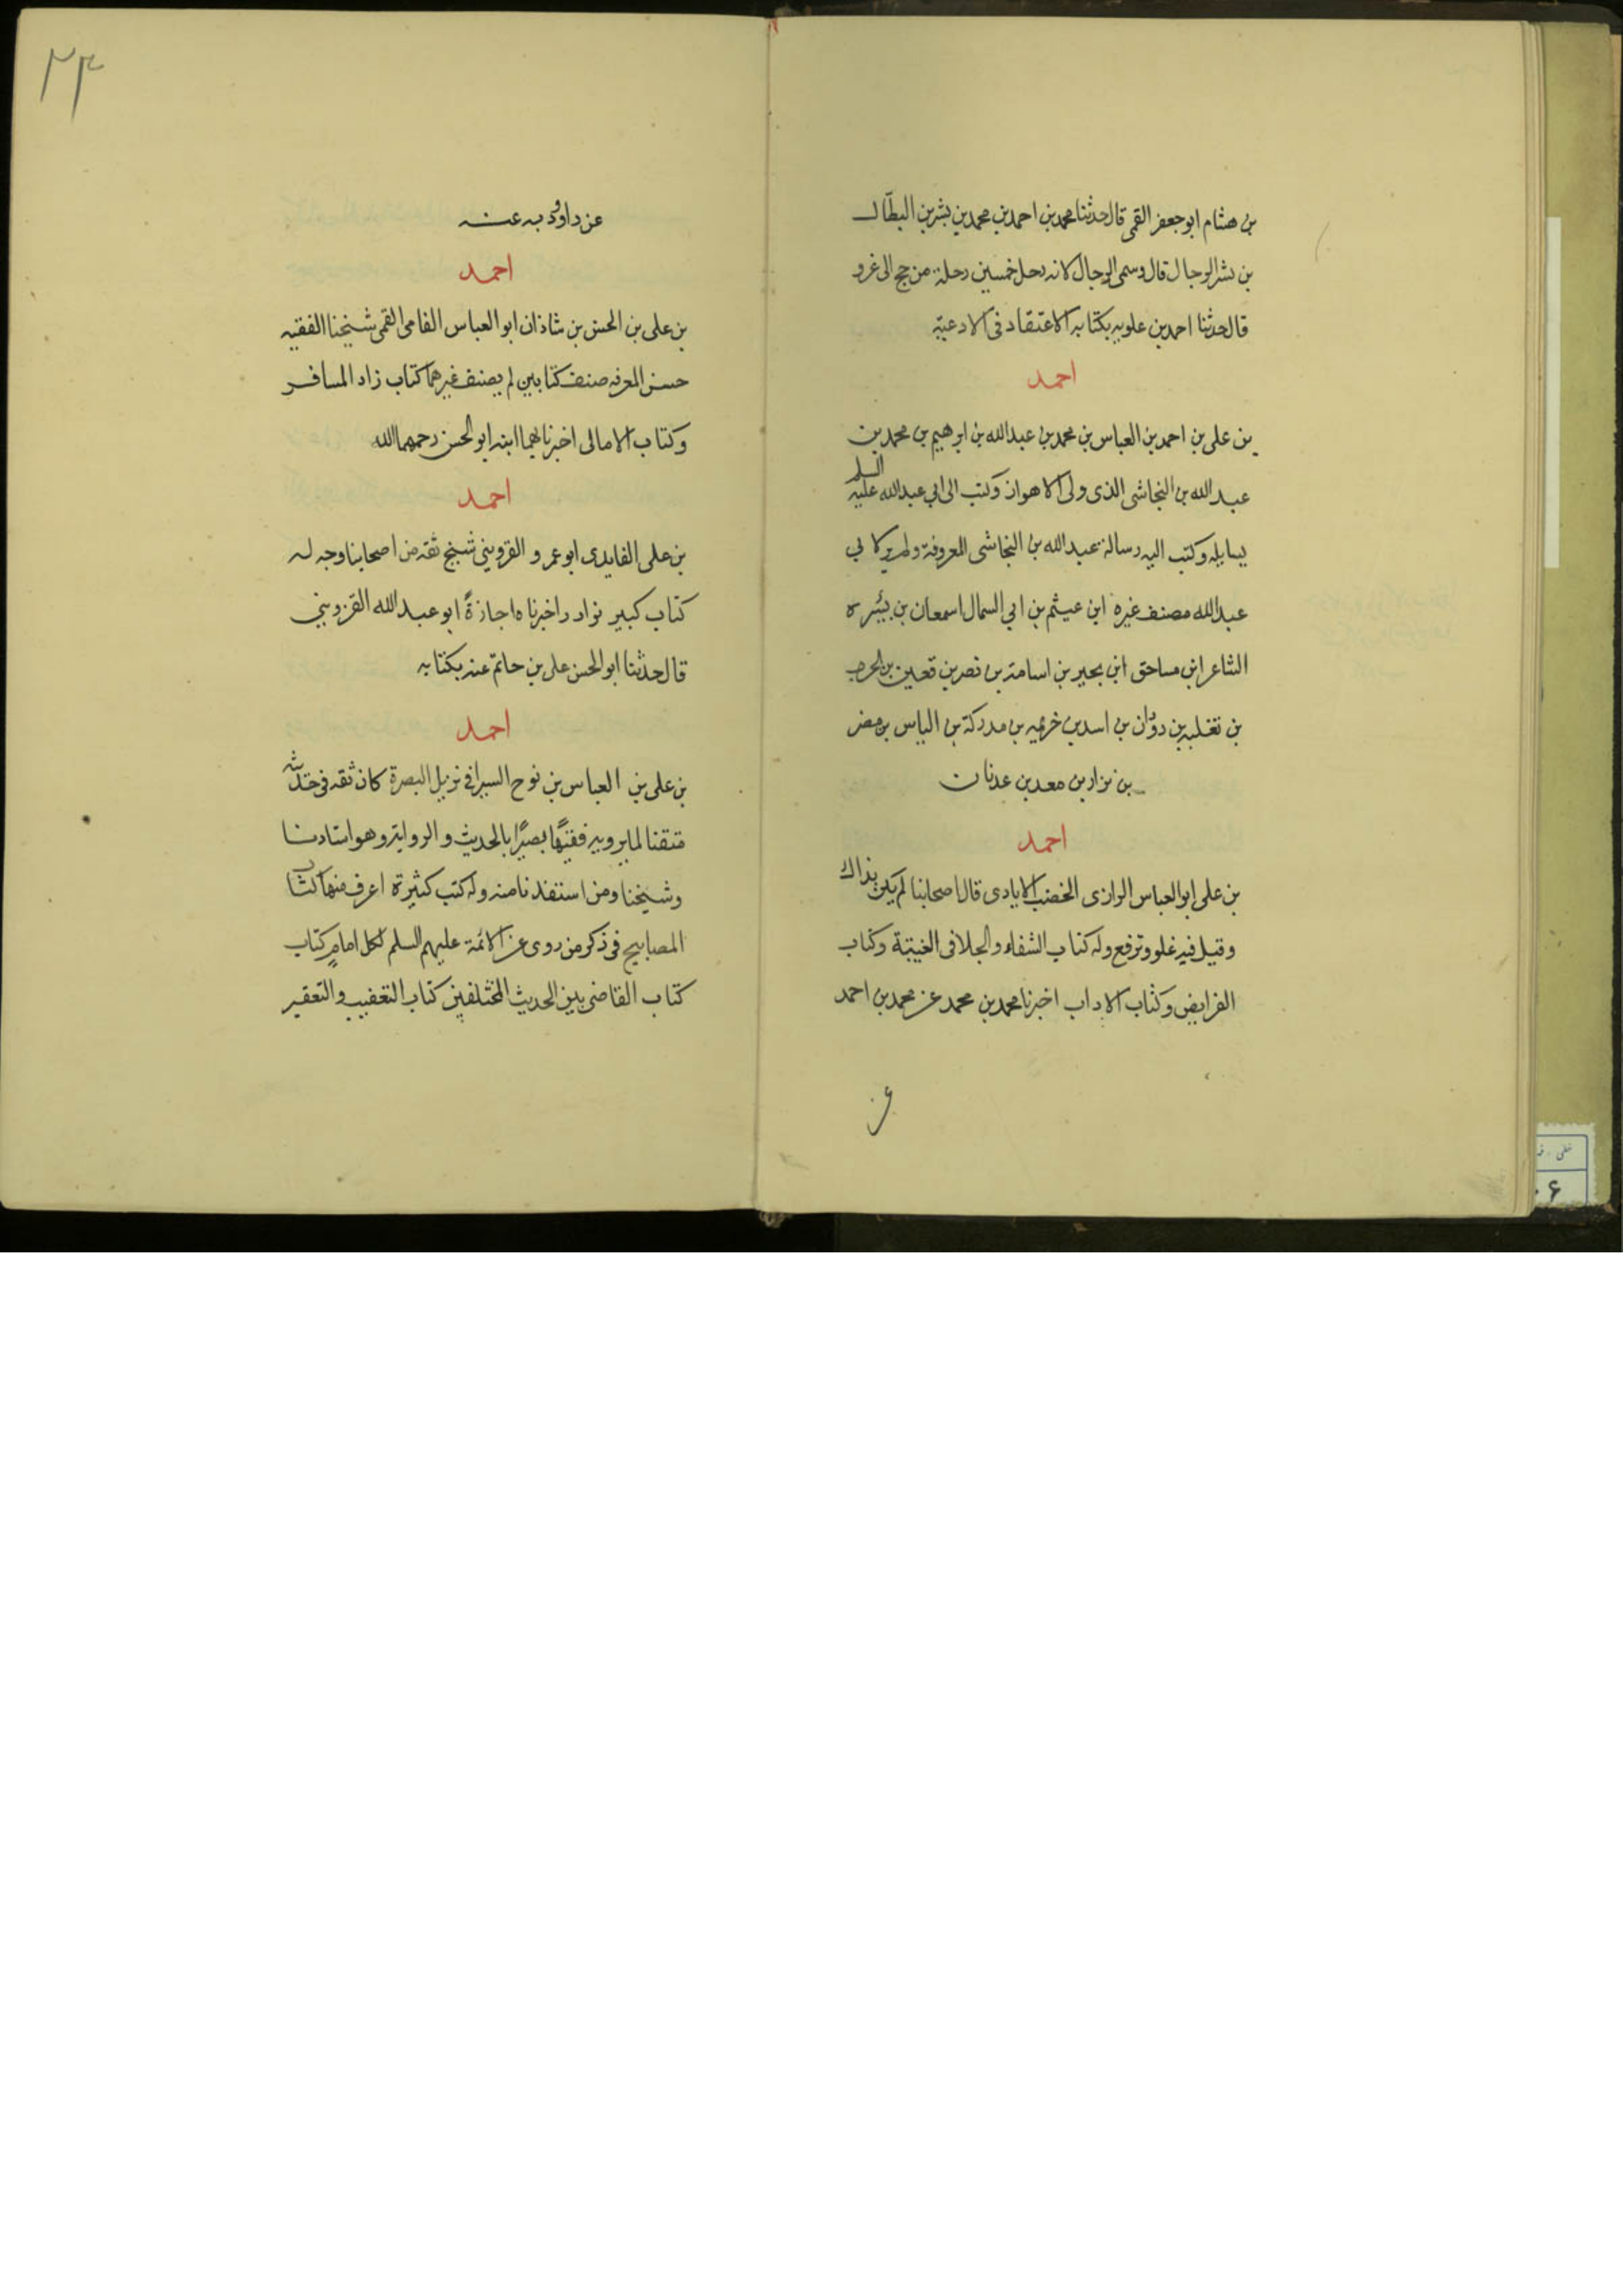 بن هشام ابو جعفر القمى قال حدثنا محمد بن احمد بن محمد بن بشر بن البطّال
بن بشر الرحال قال وسمى الرحال لانه رحل خمسين رحلة من حج الى غزو
قال حدثنا احمد بن علويه بكتابه الاعتقاد فى الادعية
احمد
بن على بن احمد بن العباس بن محمد بن عبدالله بن ابرهيم بن محمد بن
عبدالله بن النجاشى الذى ولى الاهواز وكتب الى ابى عبدالله عليه السلم
يسايله وكتب اليه رسالة عبدالله بن النجاشى المعروفة ولم ير لابى
عبدالله مصنف غيره ابن عيثم بن ابى السمال اسمعان بن
الشاعر ابن مساحق ابن بجير بن اسامة بن نصر بن قعين بن الحرب
بن تغلبه بن دودان بن اسد بن خزيمه بن مدركة بن الياس بن مضر
بن نزار بن معد بن عدنان
احمد
بن على ابو العباس الرازى الخضيب الايادى قال اصحابنا لم يكن بذاك
وقيل فيه غلو وترفع وله كتاب الشفاء والجلا فى الغيبة وكتاب
الفرايض وكتاب الاداب اخبرنا محمد بن محمد عن محمد بن احمد
۲۴
عن داود به عنه
احمد
بن على بن الحسن بن شاذان ابو العباس الفامى القمى شيخنا الفقيه
حسن المعرفه صنف كتابين لم يصنف غيرهما كتاب زاد المسافر
وكتاب الامالى اخبرنا بهما ابنه ابو الحسن رحمهما الله
احمد
بن على الفايدى ابو عمرو القزوينى شيخ ثقه من اصحابنا وجه له
كتاب كبير نوادر اخبرناه اجازةً ابو عبدالله القزوينى
قال حدثنا ابو الحسن على بن حاتم عنه بكتابه
احمد
بن على بن العباس بن نوح السيرافى نزيل البصرة كان ثقه فى حديثه
متقنا لما يرويه فقيهًا بصيرًا بالحديث والرواية وهو استادنا
وشيخنا ومن استفدنا منه وله كتب كثيرة اعرف منها كتاب
المصابيح فى ذكر من روى عن الائمة عليهم السلم لكل امامٍ كتاب
كتاب القاضى بين الحديث المختلفين كتاب التعقيب والتعقير